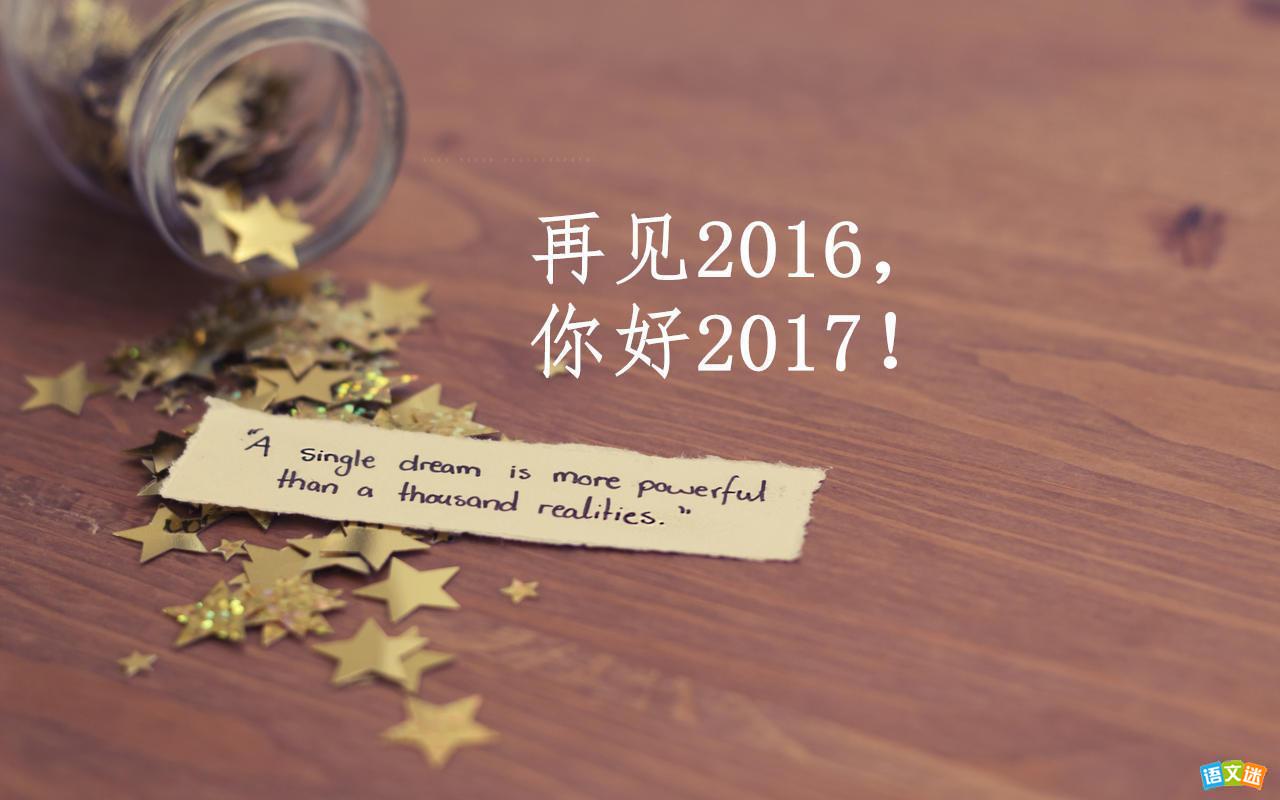 再见2016，
你好2017！
“A single dream is more powerful
than a thousand realities.”
语文迷